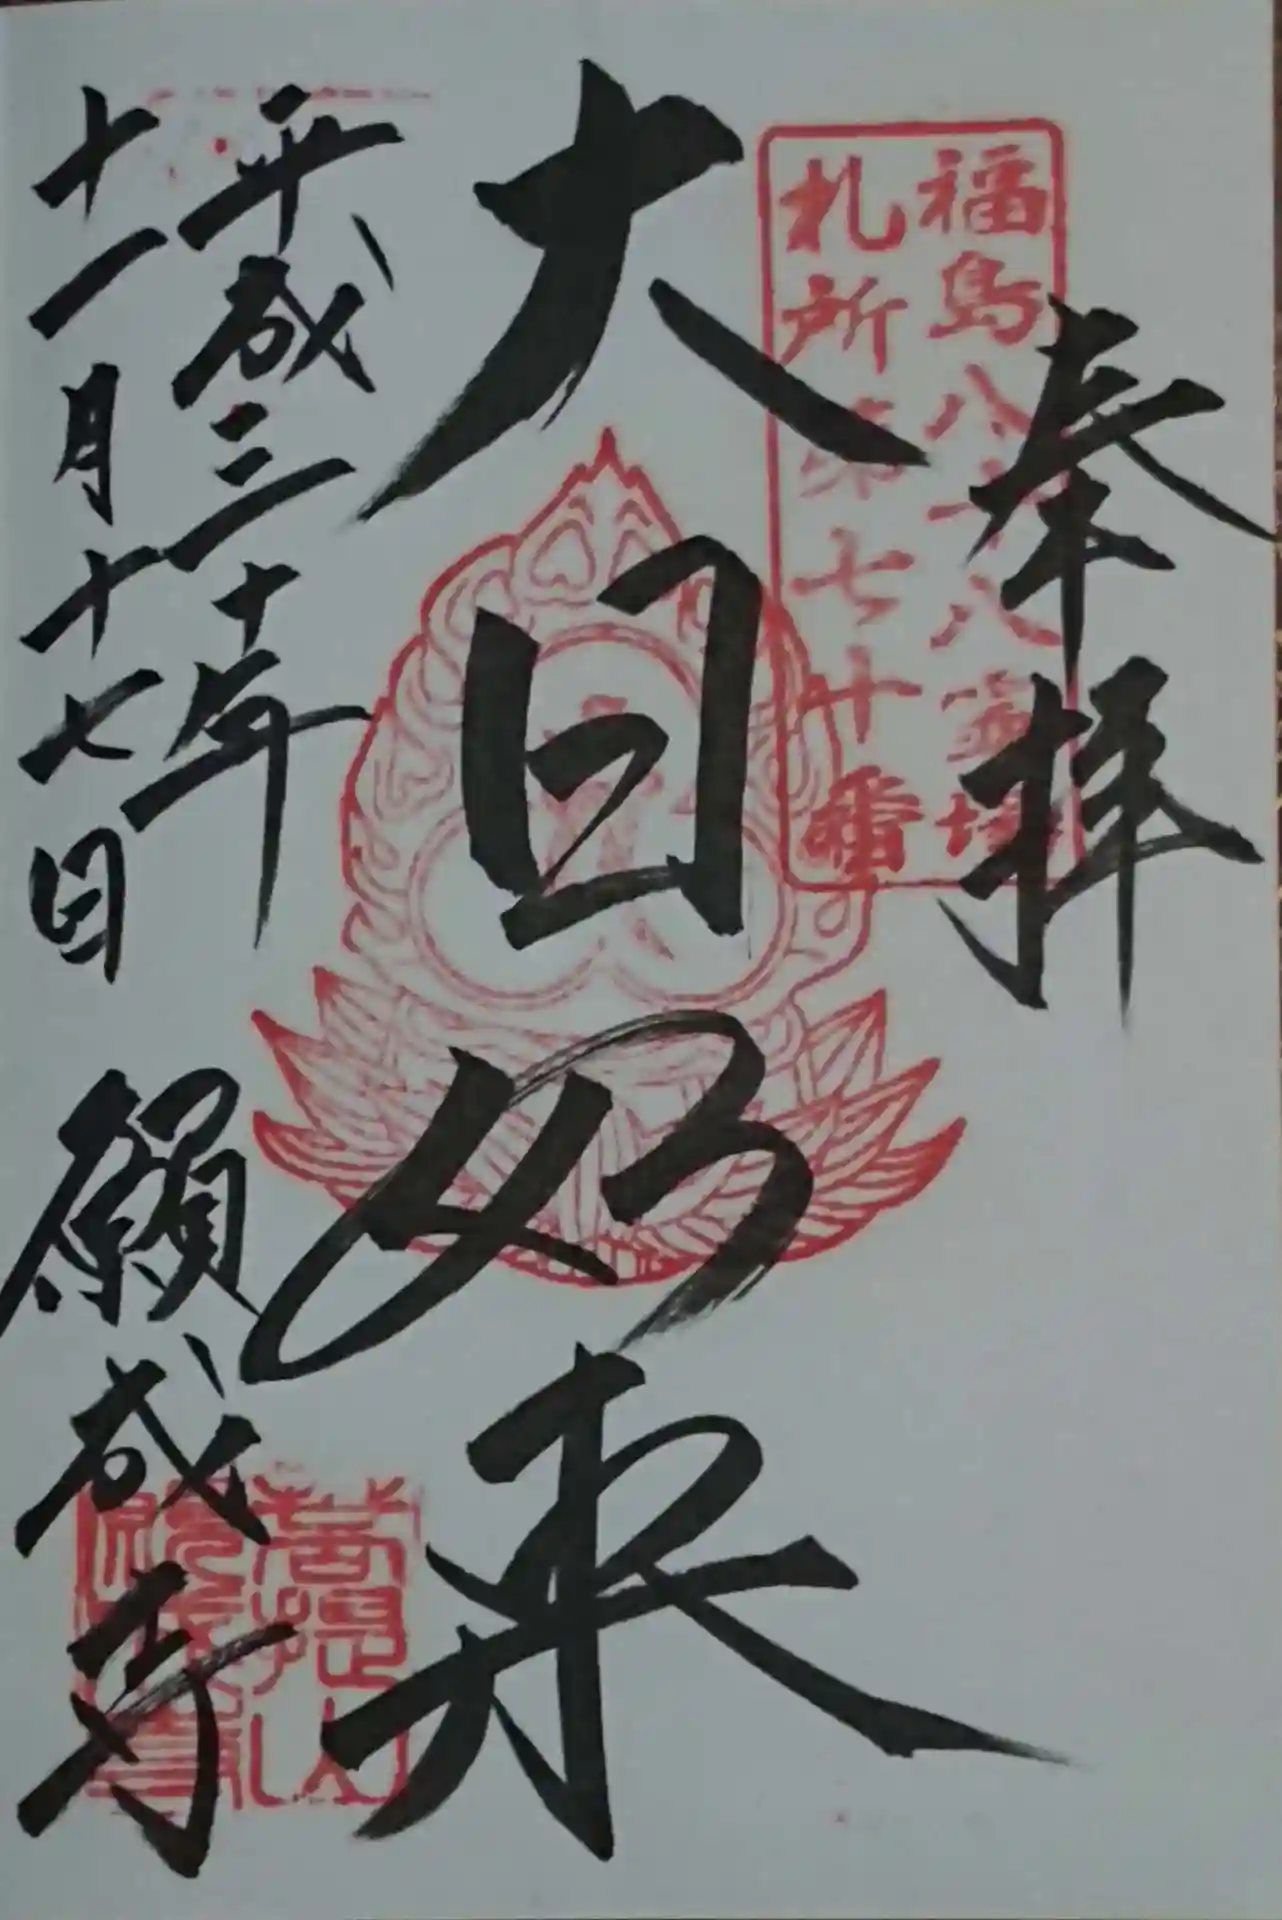 奉拝
福島八十八霊場
札所第七十番
大日如来
平成三十年
十一月十七日
願成寺
菩提山
願成寺